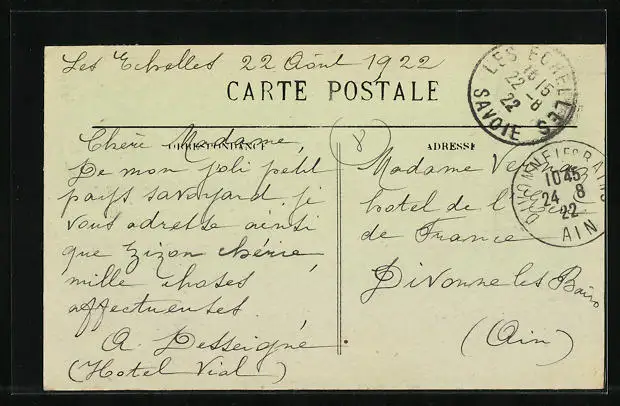 Les Echelles 22 Août 1922
CARTE POSTALE
CORRESPONDANCE
ADRESSE
Chère Madame,
De mon joli petit
pays savoyard je
vous adresse ainsi
que Zizon chérie
mille choses
affectueuses.
A. Desseigné
(Hotel Vial)
8
Madame
hotel de l'
de France
Divonne les Bains
(Ain)
LES ECHELLES
16 15
22 - 8
22
SAVOIE
DIVONNE LES BAINS
10 45
24 8
22
AIN